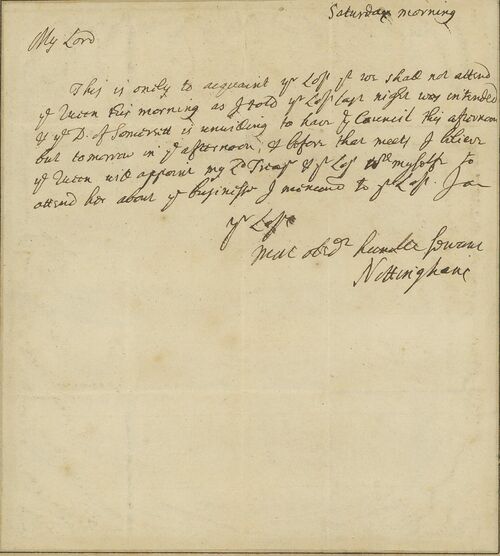 Saturday morning
My Lord
This is only to acquaint yr Lopp yt we shall not attend
ye Queen this morning as I told yr Lopp last night was intended
& ye D. of Somersett is unwilling to have ye Council this afternoon
but tomorrow in ye afternoon, & before that meets I believe
ye Queen will appoint my Ld Treasr & yr Lop wth myself to
attend her about ye businesse I mencond to yr Lopp. I am
yr Lopps
most obedt humble servant
Nottingham